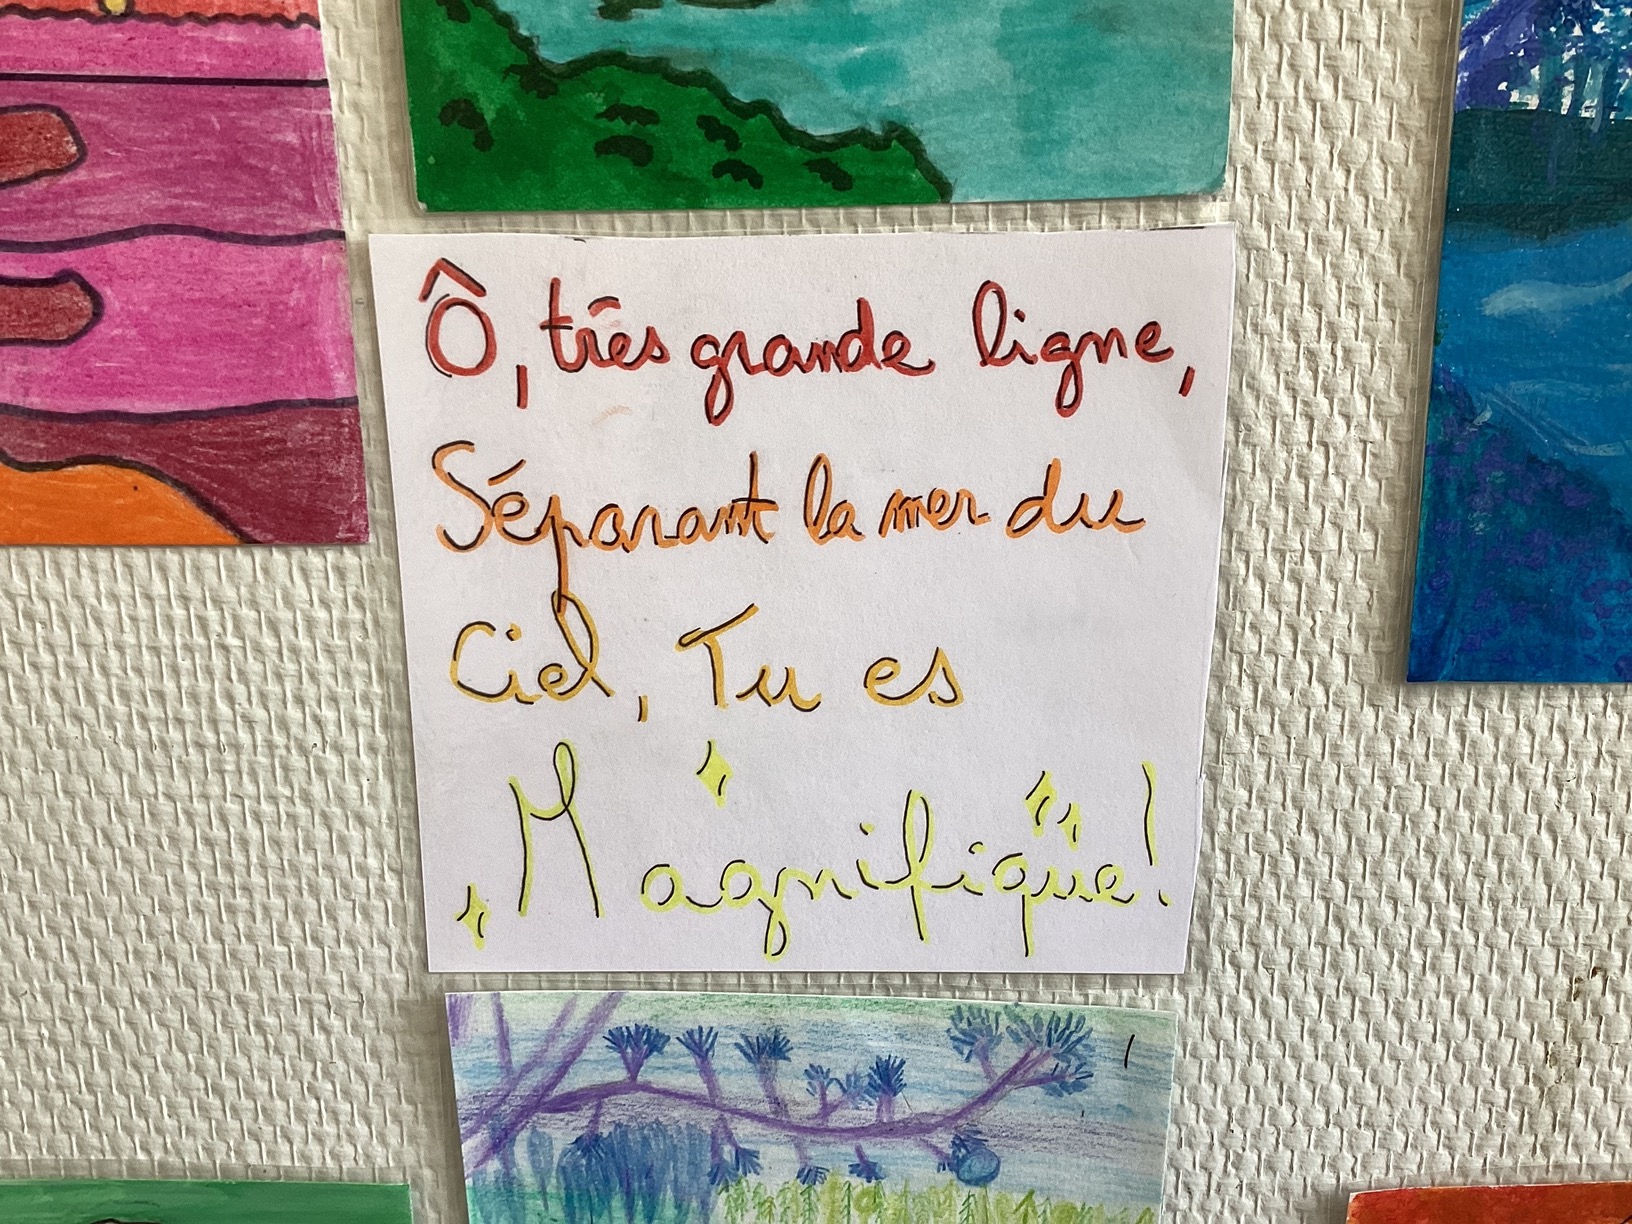 Ô, très grande ligne,
Séparant la mer du
Ciel, Tu es
Magnifique!